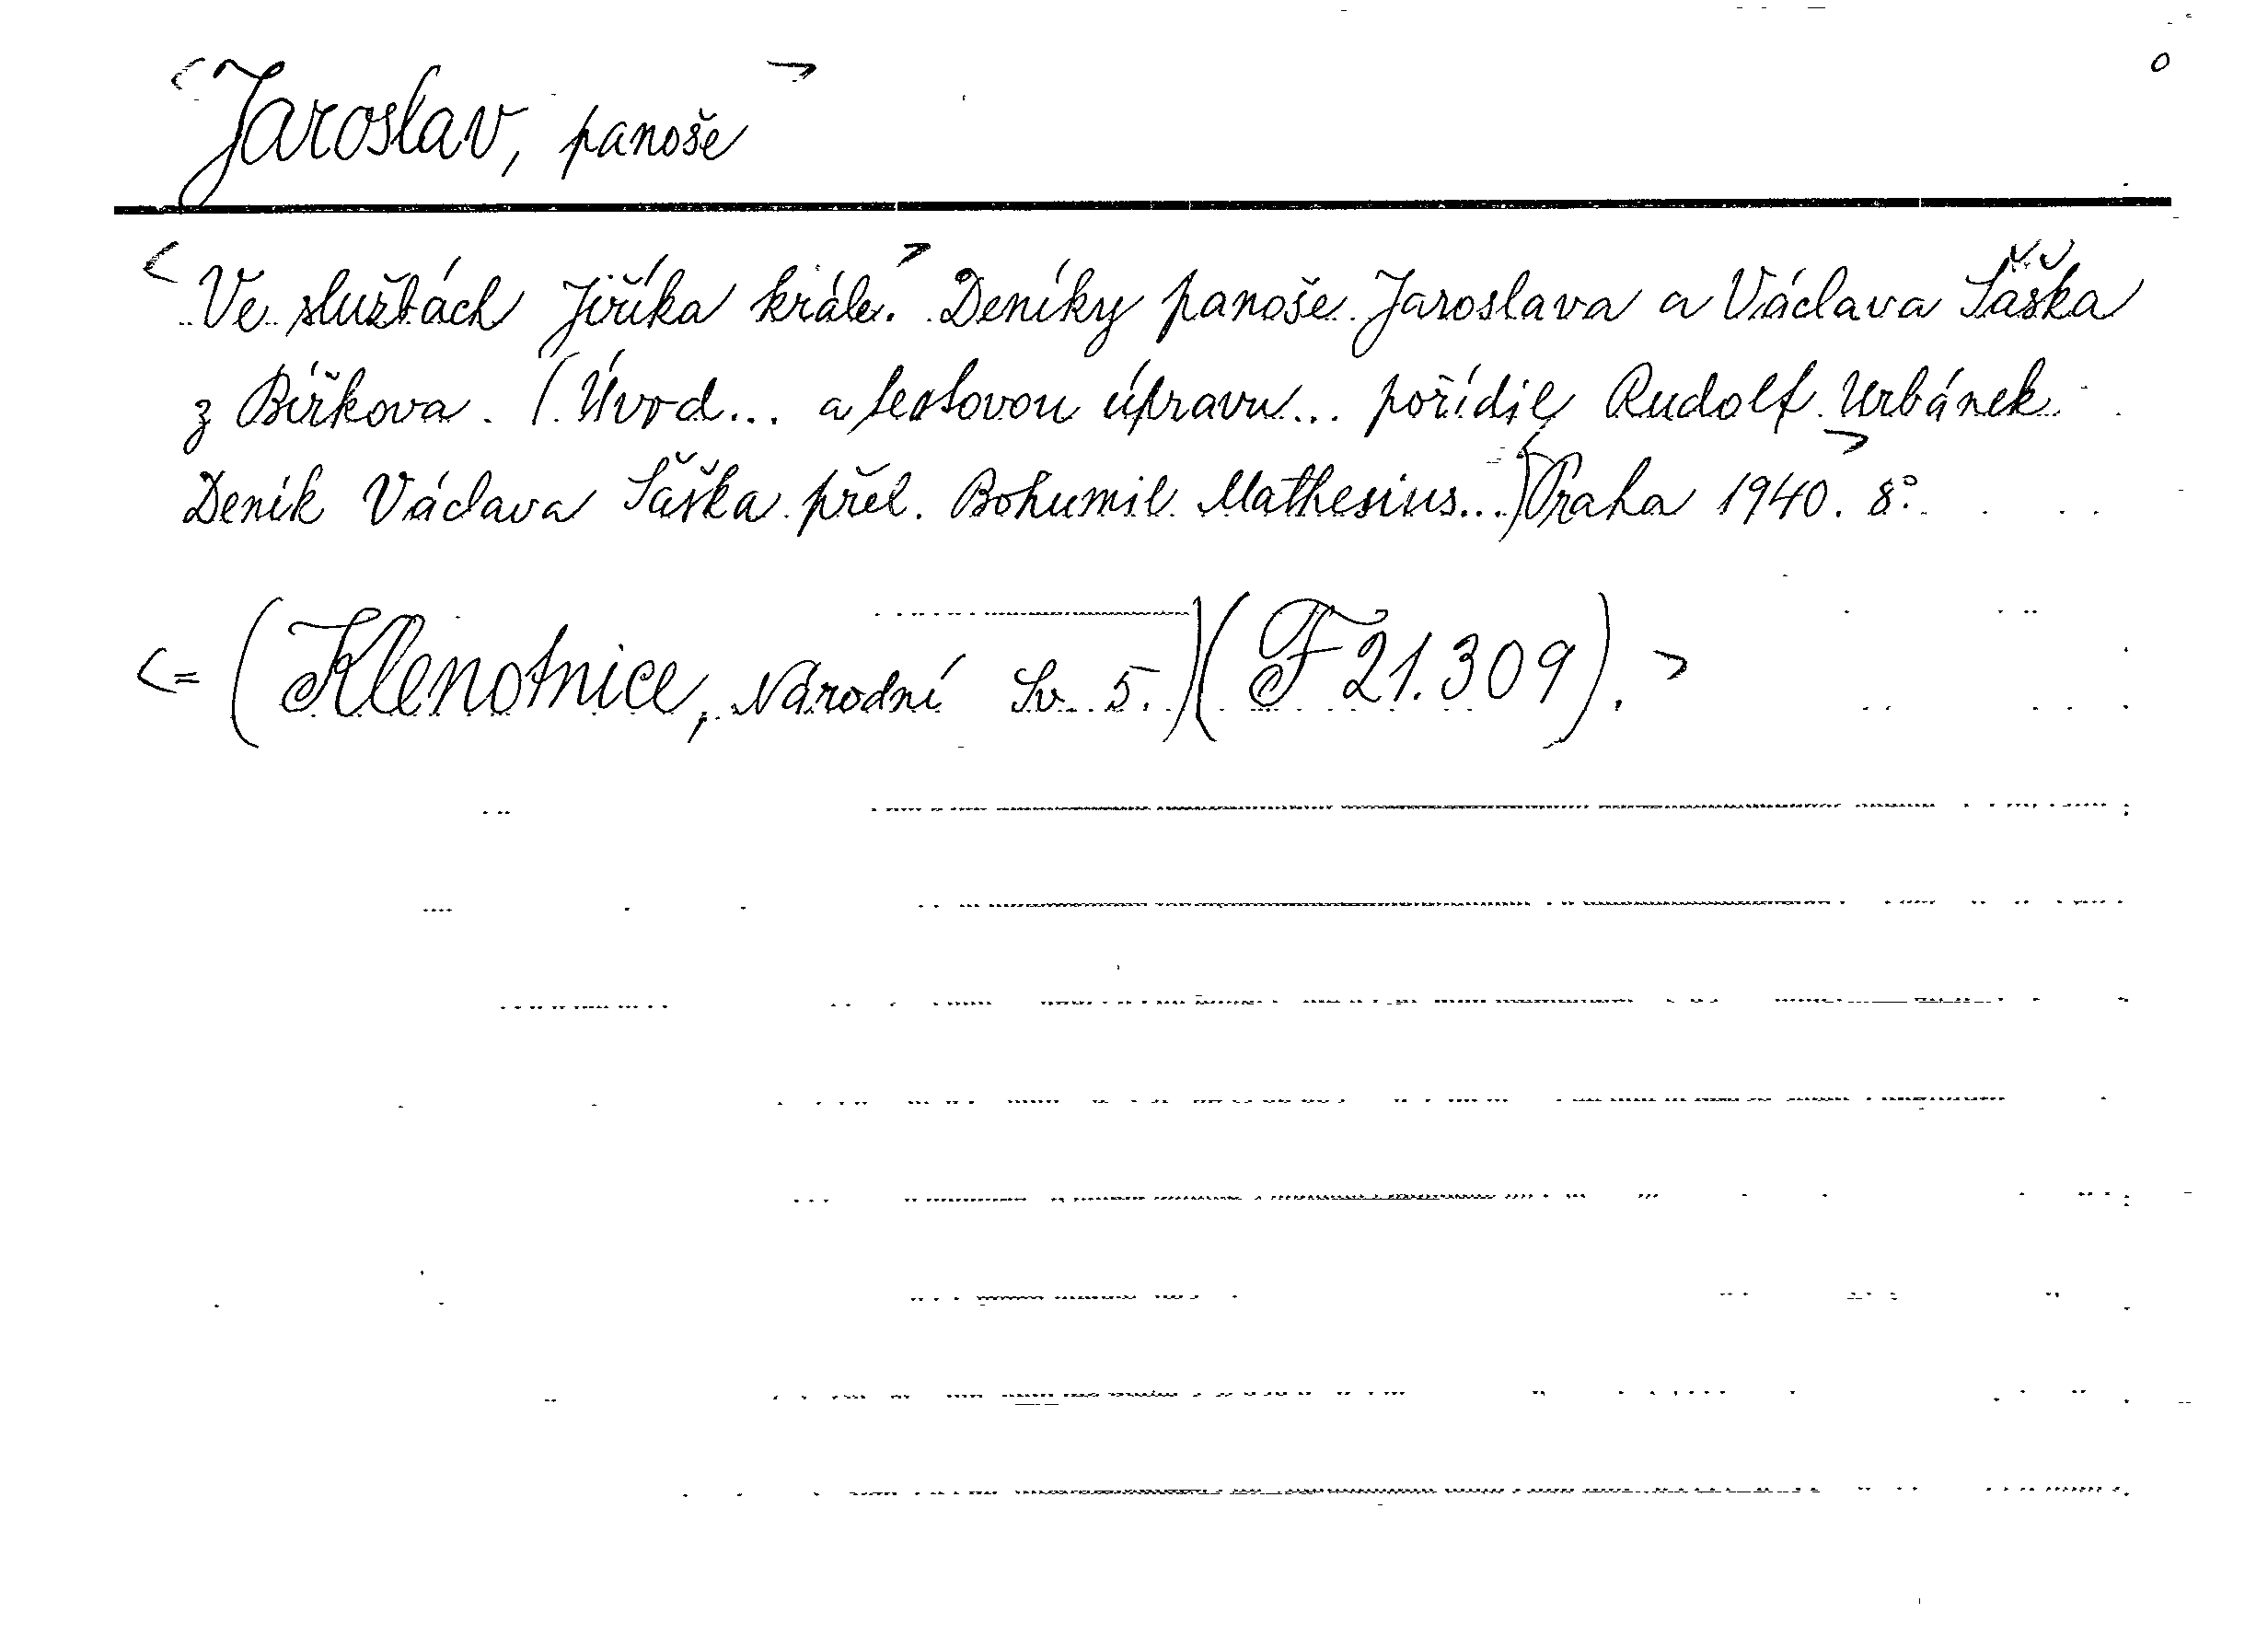 <Jaroslav, panoše>
o
<Ve službách Jiříka krále.> Deníky panoše Jaroslava a Václava Šaška
z Bířkova. (Úvod... a textovou úpravu... pořídil Rudolf Urbánek.
Deník Václava Šaška přel. Bohumil Mathesius...) <Praha> 1940. 8°.
<= (Klenotnice, Národní Sv. 5.) (F 21.309).>